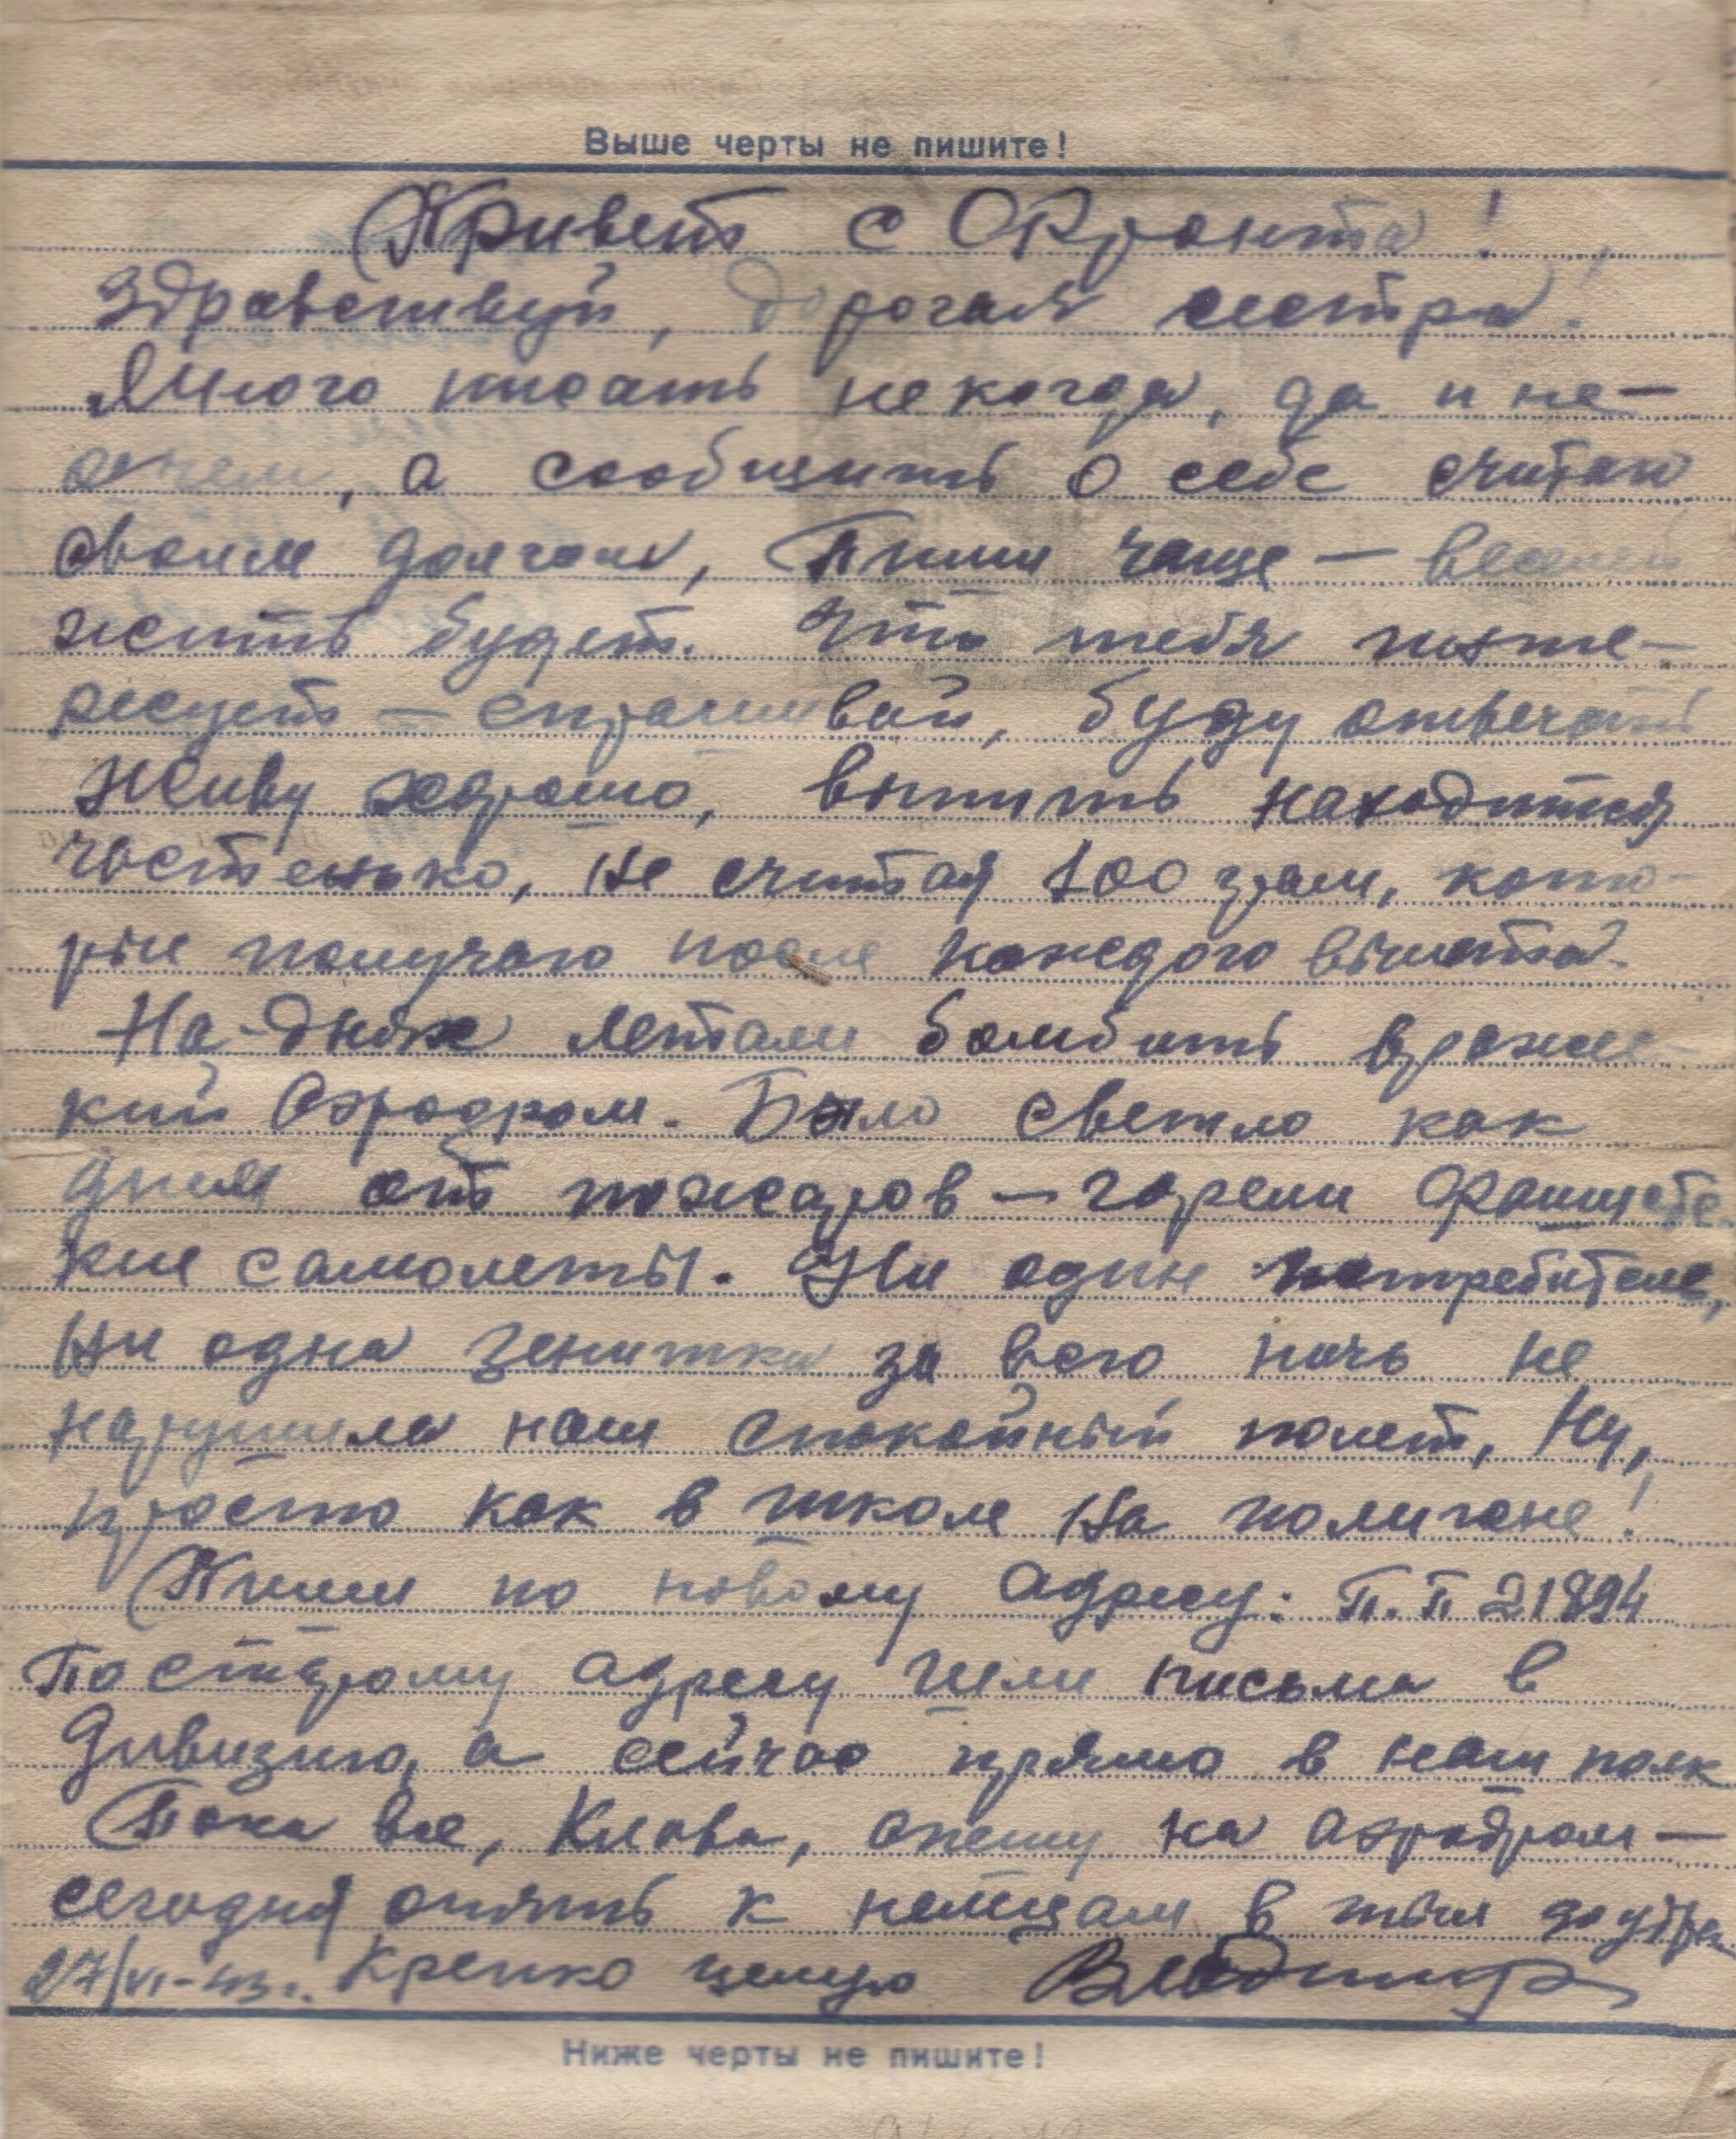 Выше черты не пишите!
Привет с Фронта!
Здравствуй, дорогая сестра!
Много писать некогда, да и не-
о чем, а сообщить о себе считаю
своим долгом, Пиши чаще — веселей
жить будет. Что тебя инте-
ресует — спрашивай, буду отвечать
Живу хорошо, выпить находится
частенько, не считая 100 грам, кото-
рые получаю после каждого вылета.
На-днях летали бомбить вражес-
кий аэродром. Было светло как
днем от пожаров — горели фашистс
кие самолеты. Ни один истребитель,
ни одна зенитка за всю ночь не
нарушила наш спокойный полет, Ну,
просто как в школе на полигоне!
Пиши по новому адресу: П.П 21894
По старому адресу шли письма в
дивизию, а сейчас прямо в наш полк
Пока все, Клава, спешу на аэродром —
сегодня опять к немцам в тыл до утра
27/VI-43г. Крепко целую Владимир
Ниже черты не пишите!